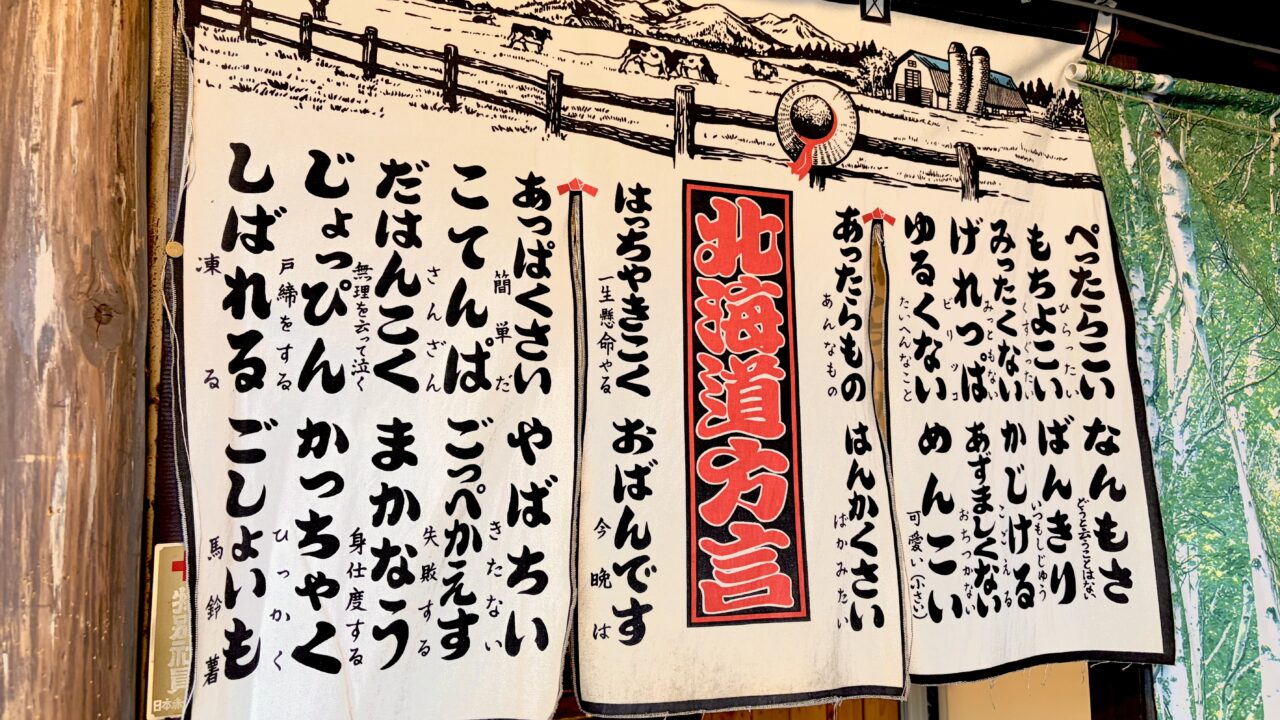 ぺったらこい
ひらったい
なんもさ
どうと云うことはない
もちょこい
くすぐったい
ばんきり
いつもしじゅう
みったくない
みっともない
かじける
こごえる
げれっぱ
ビリッコ
あずましくない
おちつかない
ゆるくない
たいへんなこと
めんこい
可愛い(小さい)
あったらもの
あんなもの
はんかくさい
ばかみたい
北海道方言
はっちゃきこく
一生懸命やる
おばんです
今晩は
あっぱくさい
簡単だ
やばちい
きたない
こてんぱ
さんざん
ごっぺかえす
失敗する
だはんこく
無理を云って泣く
まかなう
身仕度する
じょっぴん
戸締をする
かっちゃく
ひっかく
しばれる
凍る
ごしょいも
馬鈴薯
日本赤